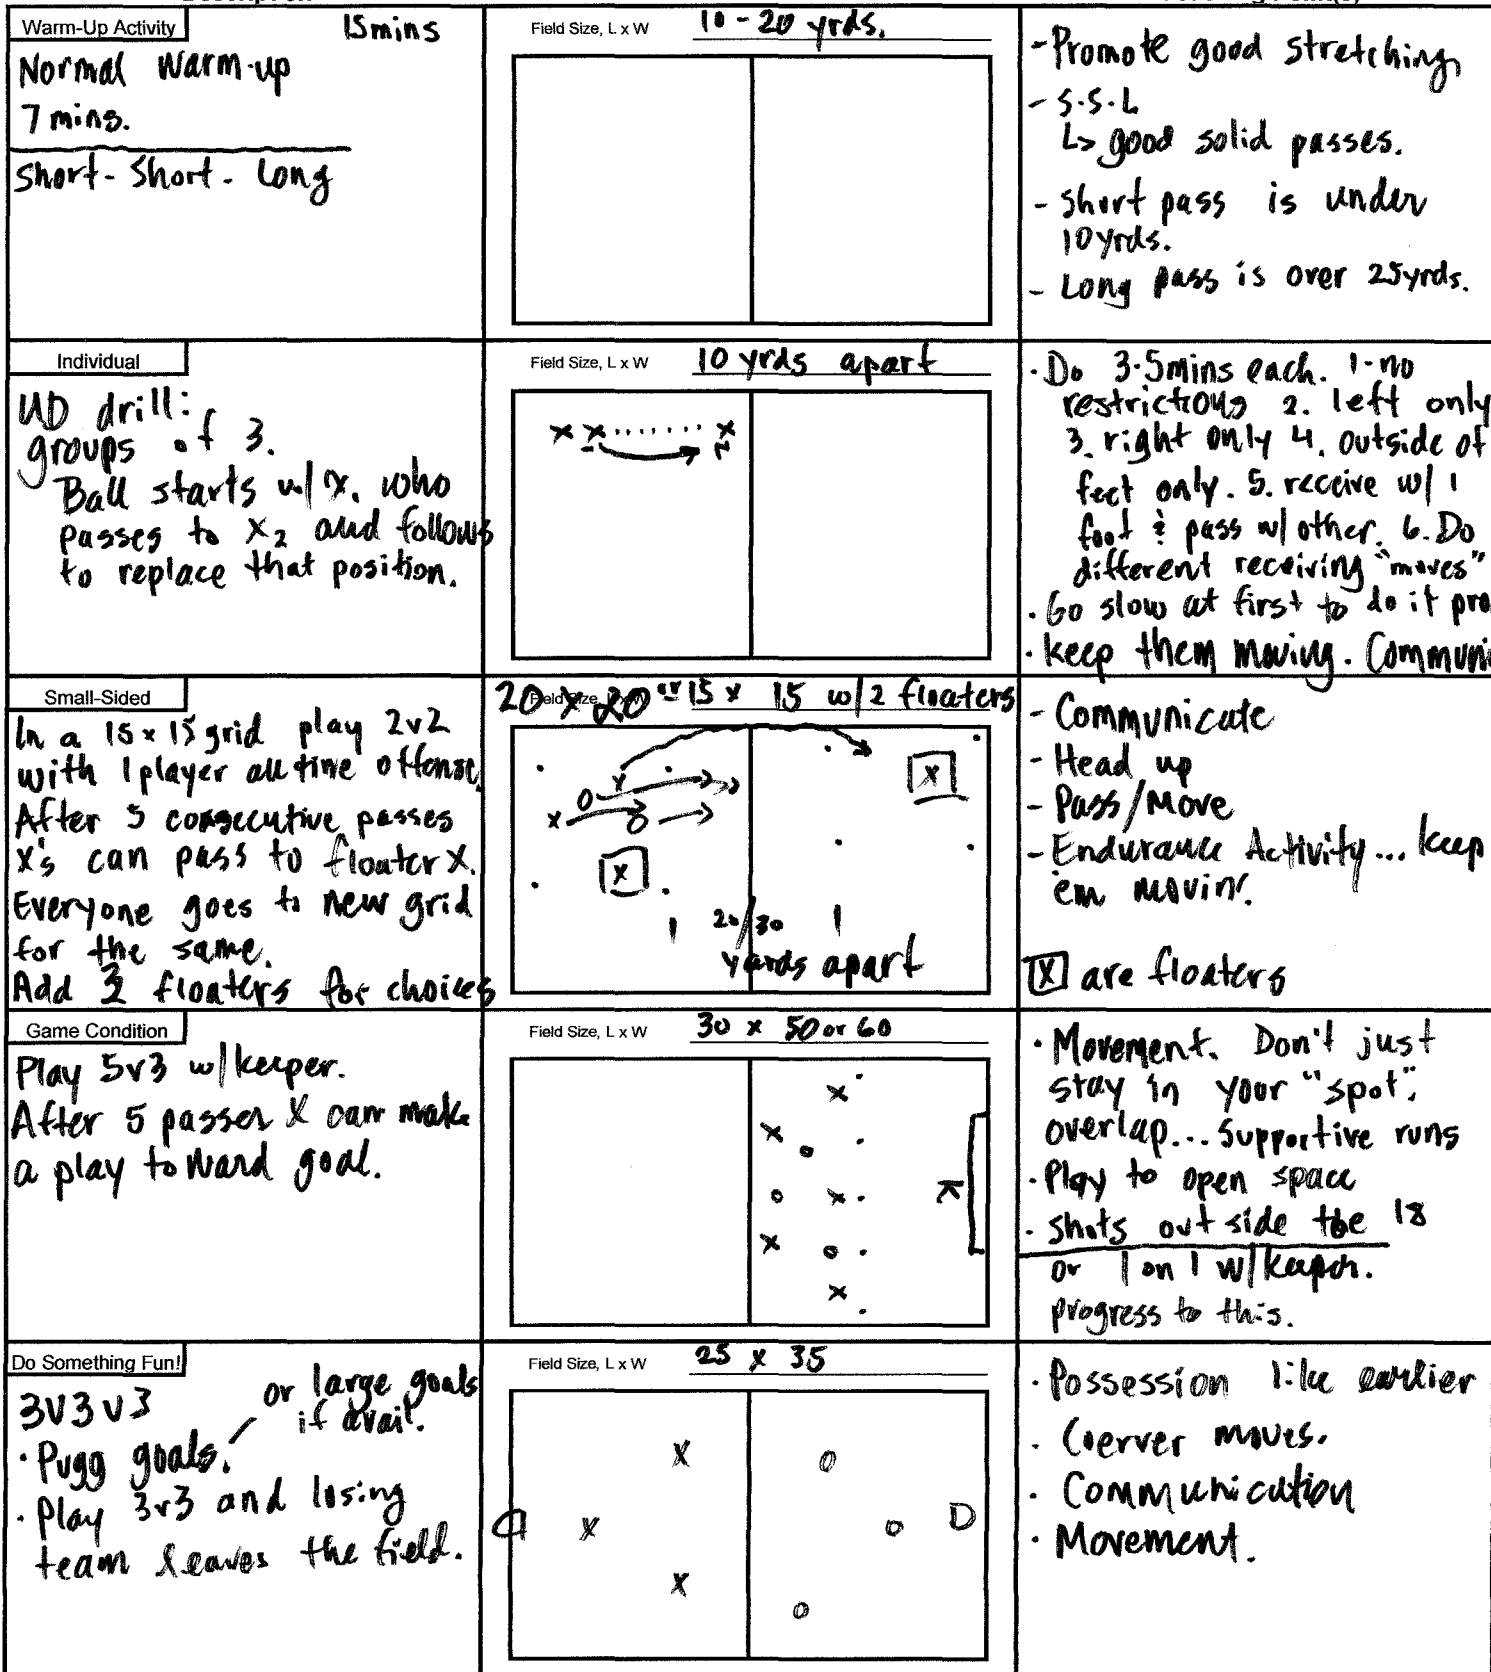 Warm-Up Activity 15mins
Normal Warm-up
7 mins.
Short - Short - Long
Field Size, L x W 10 - 20 yrds.
- Promote good stretching
- S.S.L
↳ good solid passes.
- Short pass is under
10 yrds.
- Long pass is over 25 yrds.
Individual
UD drill:
groups of 3.
Ball starts w/ x, who
passes to x2 and follows
to replace that position.
Field Size, L x W 10 yrds apart
x x ....... x
· Do 3-5mins each. 1-no
restrictions 2. left only
3. right only 4. outside of
feet only. 5. receive w/ 1
foot & pass w/ other. 6. Do
different receiving "moves"
· Go slow at first to do it pro
· keep them moving. Communi
Small-Sided
In a 15 x 15 grid play 2v2
with 1 player all time offense.
After 5 consecutive passes
X's can pass to floater X.
Everyone goes to new grid
for the same.
Add 2 floaters for choices
Field Size, 20 x 20 or 15 x 15 w/ 2 floaters
x
x
O
x
O
x
20/30
yards apart
- Communicate
- Head up
- Pass/Move
- Endurance Activity... keep
'em movin'.
X are floaters
Game Condition
Play 5v3 w/ keeper.
After 5 passes X can make
a play toward goal.
Field Size, L x W 30 x 50 or 60
x
x
o
o x
K
x
o
x
· Movement. Don't just
stay in your "spot".
overlap... Supportive runs
· Play to open space
· Shots outside the 18
or 1 on 1 w/ keeper.
progress to this.
Do Something Fun!
3v3v3
or large goals
if avail.
· Pugg goals.
· Play 3v3 and losing
team leaves the field.
Field Size, L x W 25 x 35
X
O
X
O
D
X
O
· Possession like earlier
· Coerver moves.
· Communication
· Movement.